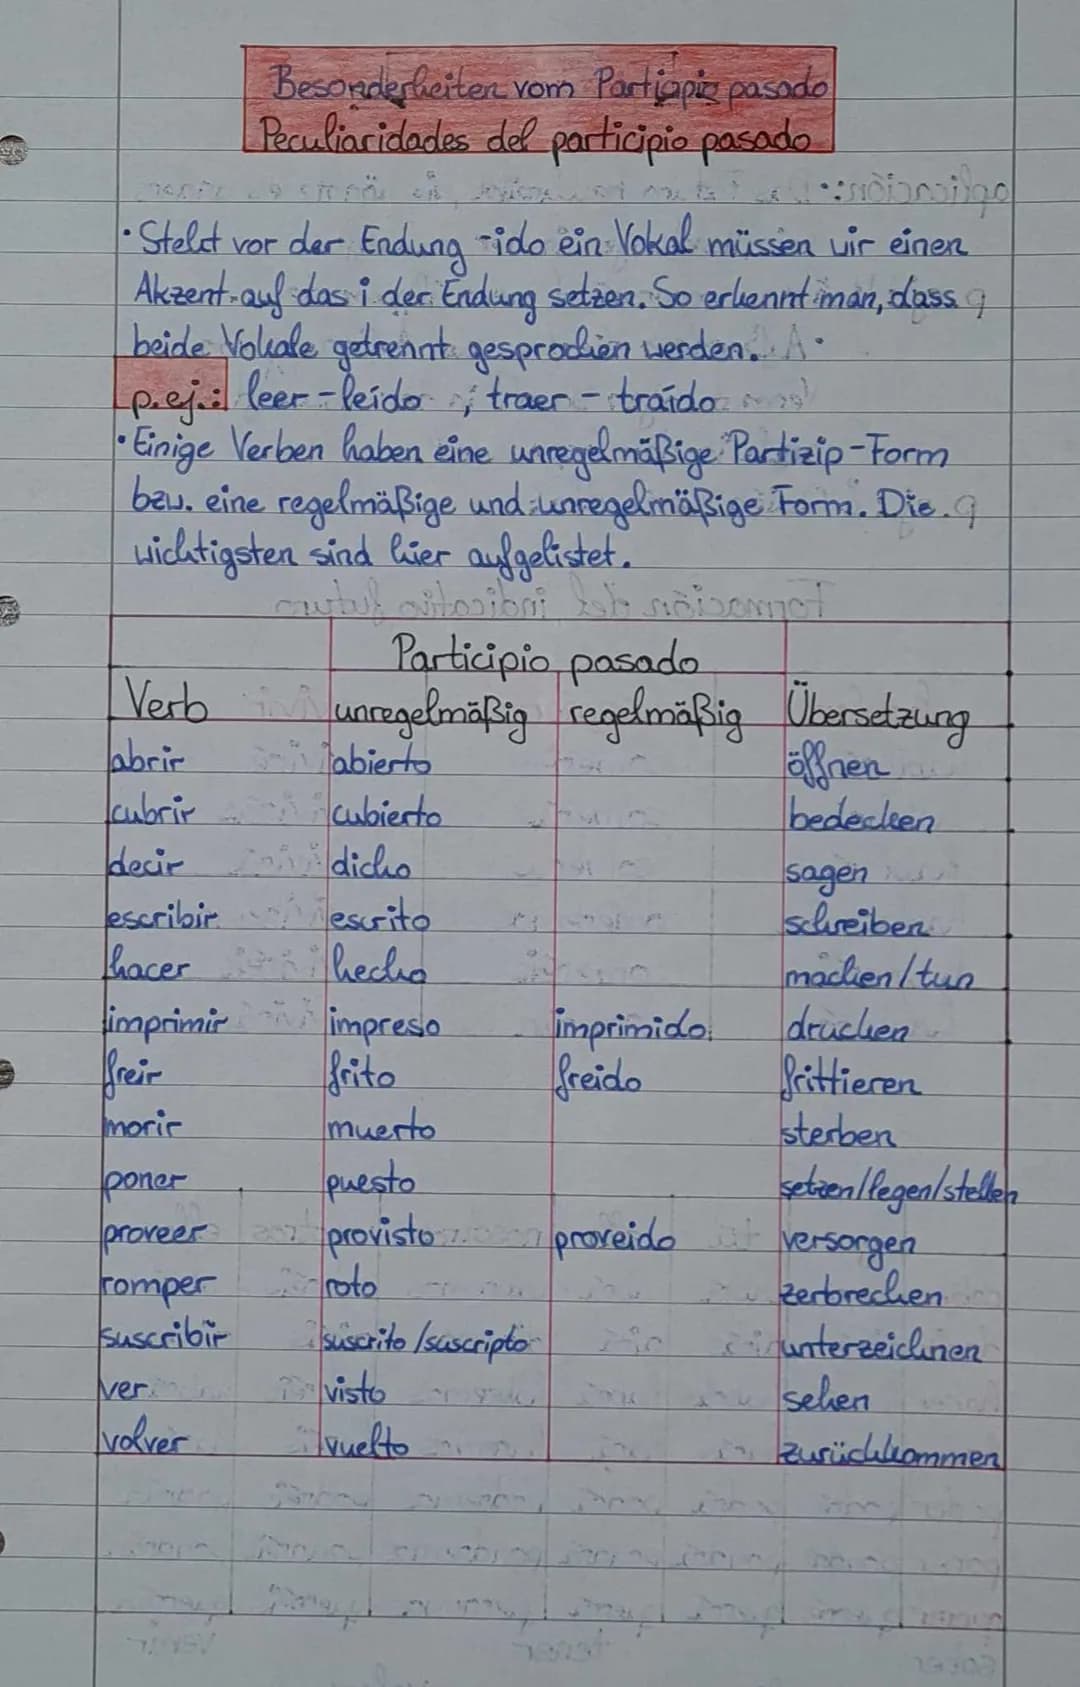 Besonderheiten vom Partizipio pasado
Peculiaridades del participio pasado
• Steht vor der Endung -ido ein Vokal müssen wir einen
Akzent auf das i der Endung setzen. So erkennt man, dass
beide Vokale getrennt gesprochen werden.
p.ej.: leer - leído ; traer - traído
• Einige Verben haben eine unregelmäßige Partizip-Form
bzw. eine regelmäßige und unregelmäßige Form. Die
wichtigsten sind hier aufgelistet.
Participio pasado
Verb unregelmäßig regelmäßig Übersetzung
abrir abierto öffnen
cubrir cubierto bedecken
decir dicho sagen
escribir escrito schreiben
hacer hecho machen/tun
imprimir impreso imprimido drucken
freir frito freido frittieren
morir muerto sterben
poner puesto setzen/legen/stellen
proveer provisto proveido versorgen
romper roto zerbrechen
suscribir suscrito/suscripto unterzeichnen
ver visto sehen
volver vuelto zurückkommen